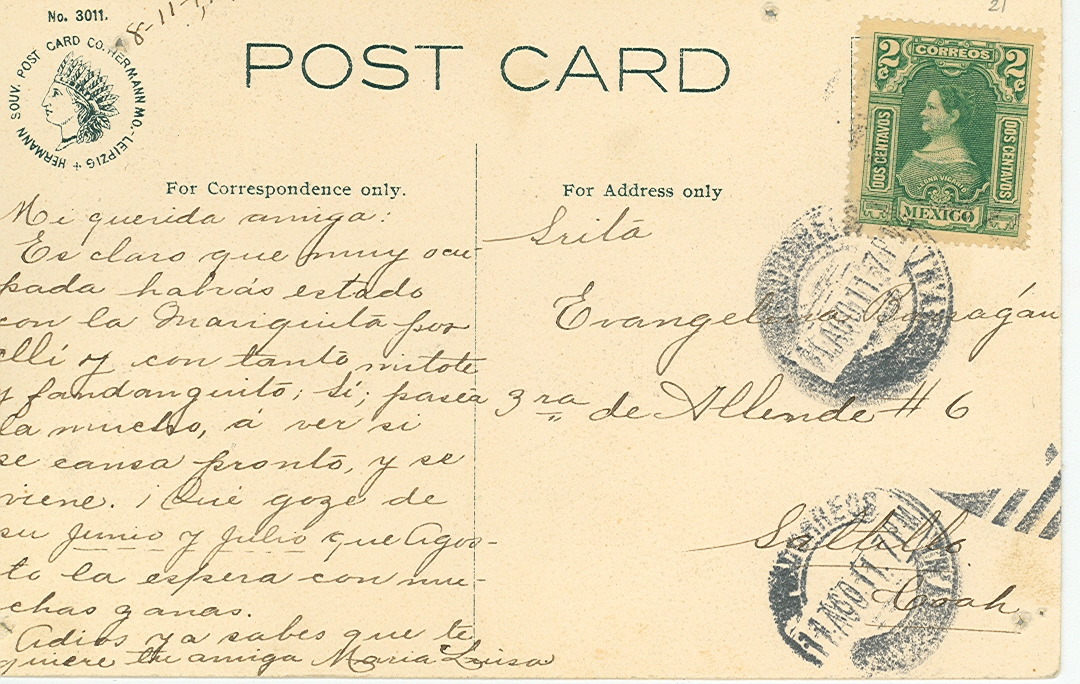 No. 3011.
8-11-
21
HERMANN SOUV. POST CARD CO. HERMANN MO.-LEIPZIG +
POST CARD
2 CORREOS 2
DOS CENTAVOS
DOS CENTAVOS
MEXICO
For Correspondence only.
For Address only
Mi querida amiga:
Es claro que muy ocu
pada habrás estado
con la Mariquita por
allí y con tanto mitote
y fandanguito; sí; pasea
la mucho, á ver si
se cansa pronto, y se
viene. ¡Qué goze de
su junio y julio que Agos-
to la espera con mu-
chas ganas.
Adios ya sabes que te
quiere tu amiga María Luisa
Srita
Evangelina Barragán
3ra de Allende # 6
Saltillo
Coah
AGO 11. 7 PM
CORREOS
11 AGO 11. 7 PM